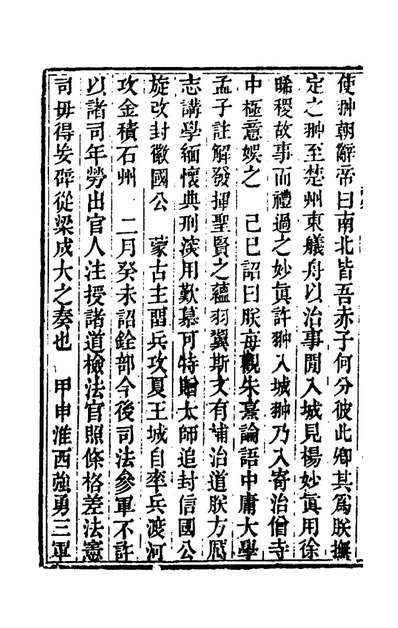 使翀朝辭帝曰南北皆吾赤子何分彼此卿其爲朕撫
定之翀至楚州東艤舟以治事閒入城見楊妙眞用徐
晞稷故事而禮過之妙眞許翀入城翀乃入寄治僧寺
中極意娛之　己巳詔曰朕每觀朱熹論語中庸大學
孟子註解發揮聖賢之蘊羽翼斯文有補治道朕方厲
志講學緬懷典刑深用歎慕可特贈太師追封信國公
旋改封徽國公　蒙古主畱兵攻夏王城自率兵渡河
攻金積石州　二月癸未詔銓部今後司法參軍不許
以諸司年勞出官人注授諸道檢法官照條格差法憲
司毋得妄辟從梁成大之奏也　甲申淮西強勇三軍